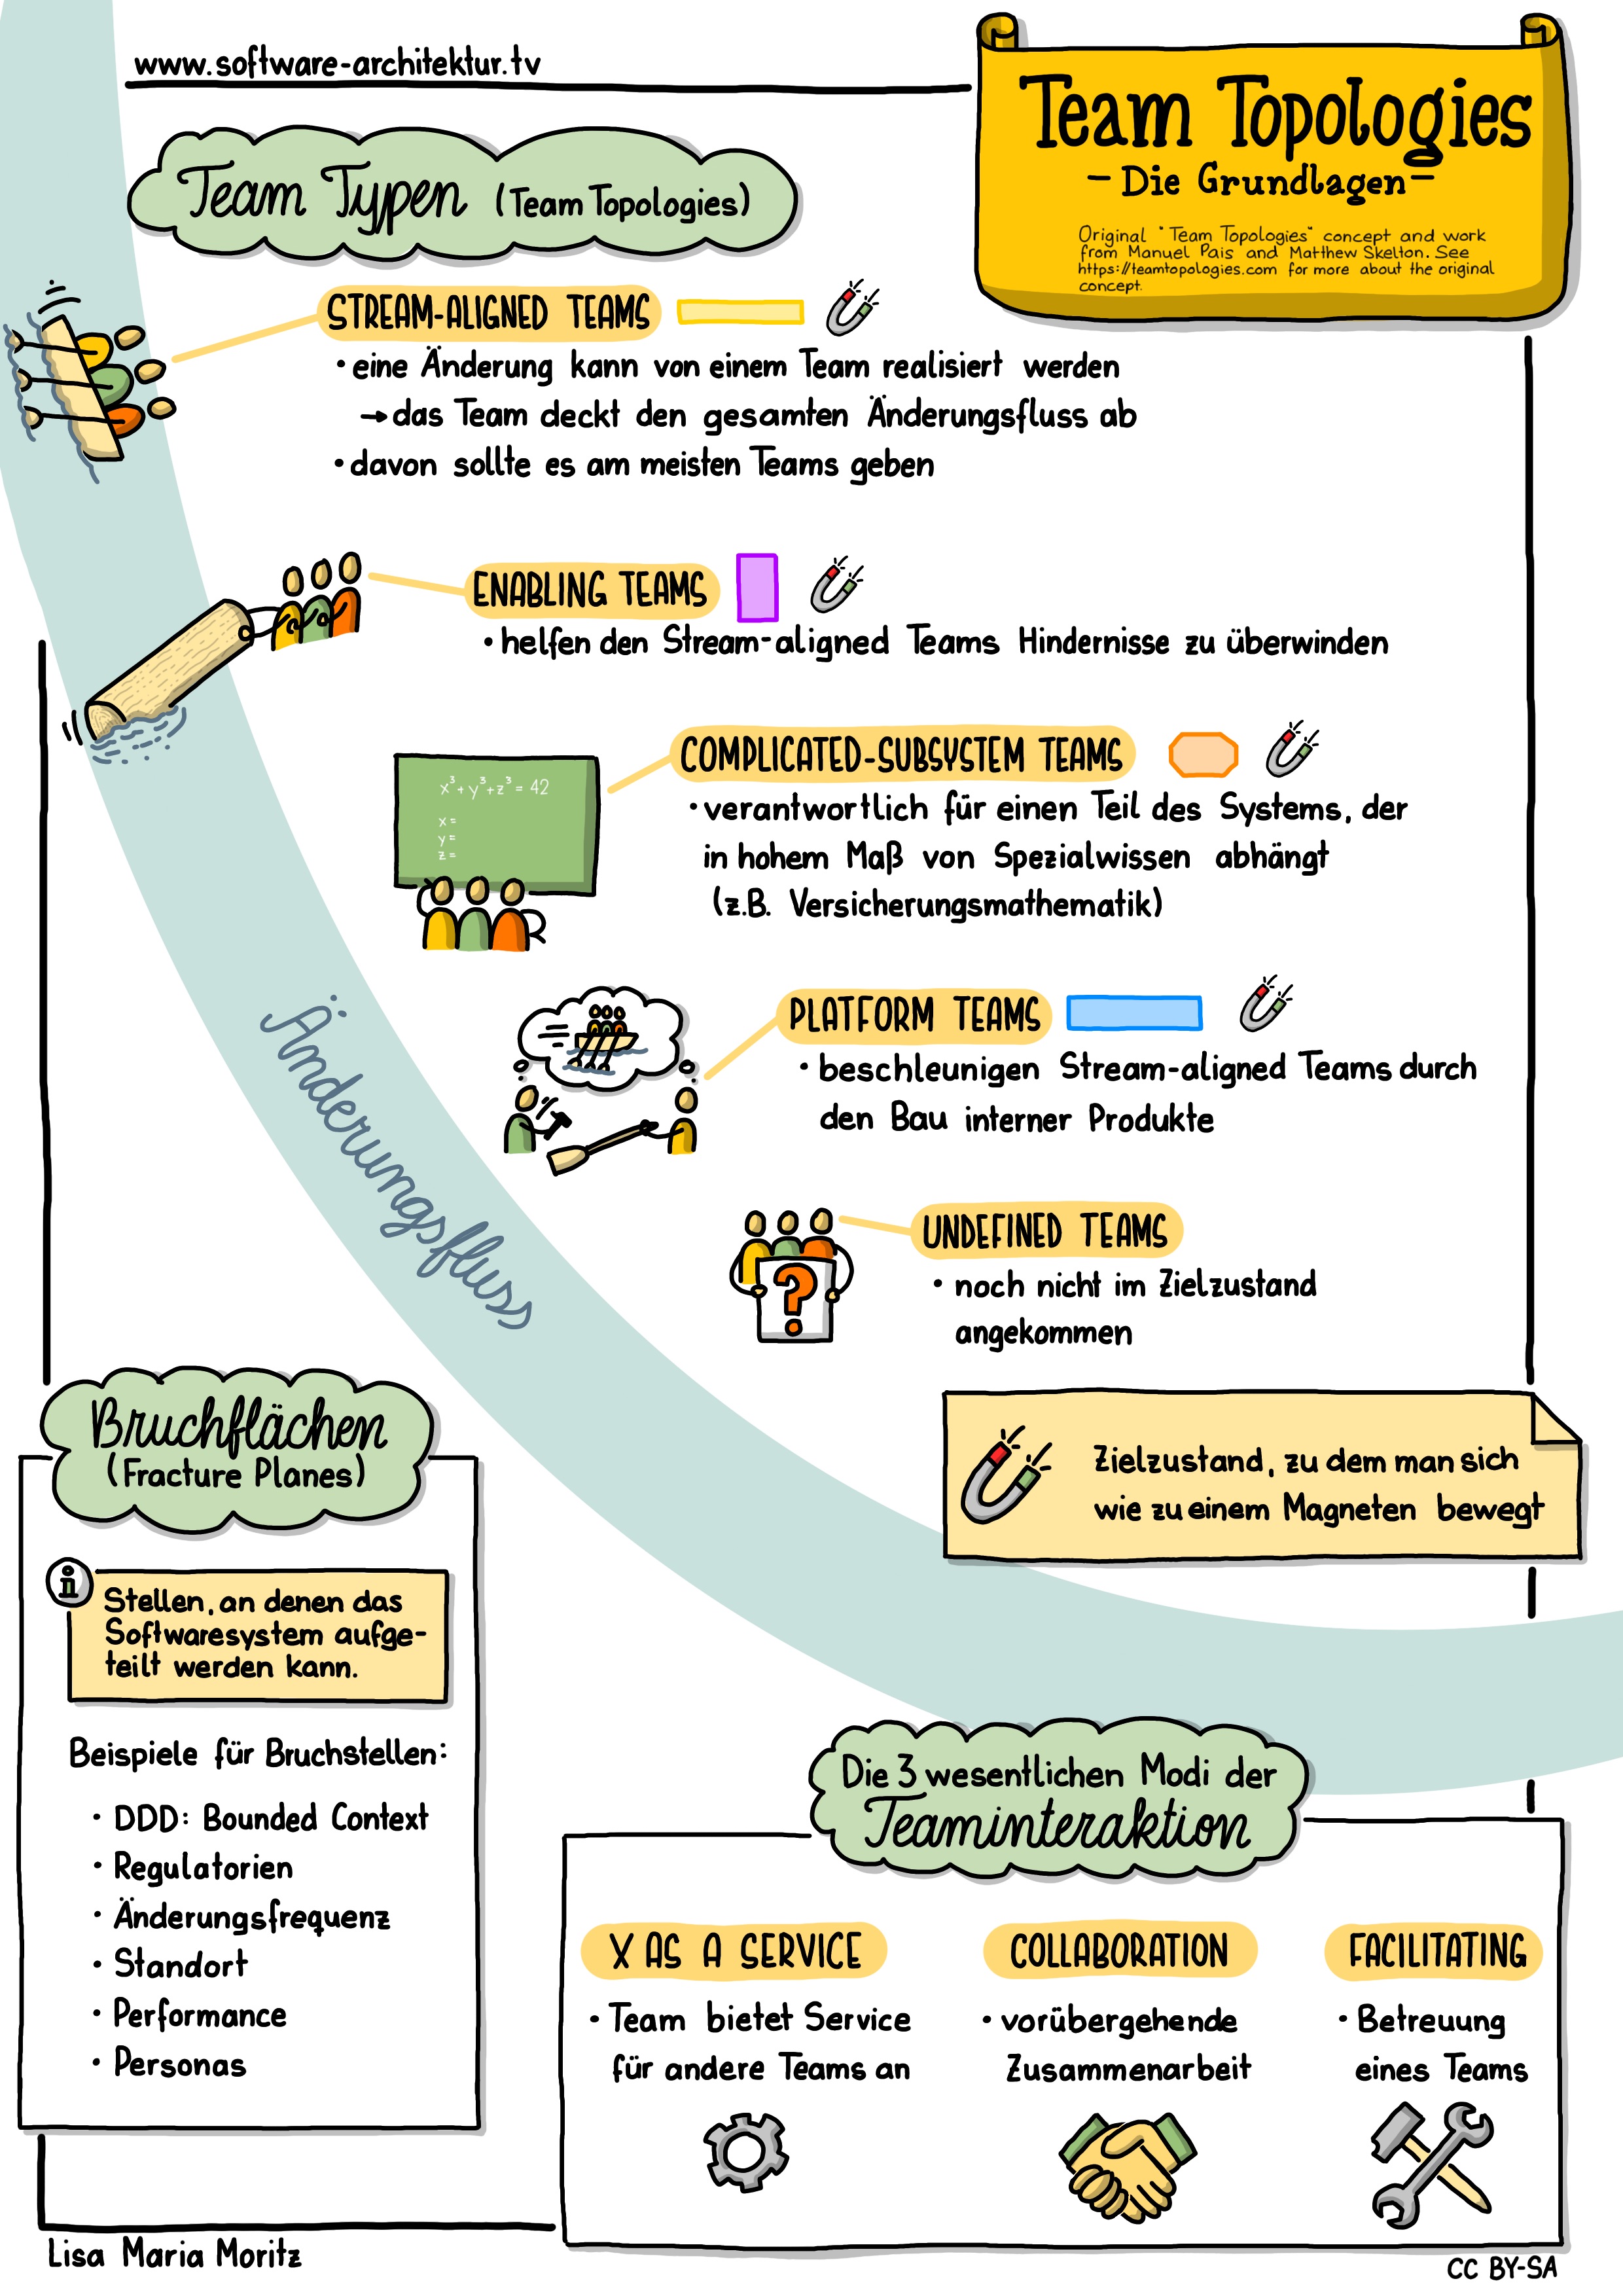 www.software-architektur.tv
Team Topologies
- Die Grundlagen -
Original "Team Topologies" concept and work
from Manuel Pais and Matthew Skelton. See
https://teamtopologies.com for more about the original
concept.
Team Typen (Team Topologies)
STREAM-ALIGNED TEAMS
• eine Änderung kann von einem Team realisiert werden
→ das Team deckt den gesamten Änderungsfluss ab
• davon sollte es am meisten Teams geben
ENABLING TEAMS
• helfen den Stream-aligned Teams Hindernisse zu überwinden
x³+y³+z³=42
x=
y=
z=
COMPLICATED-SUBSYSTEM TEAMS
• verantwortlich für einen Teil des Systems, der
in hohem Maß von Spezialwissen abhängt
(z.B. Versicherungsmathematik)
PLATFORM TEAMS
• beschleunigen Stream-aligned Teams durch
den Bau interner Produkte
Änderungsfluss
?
UNDEFINED TEAMS
• noch nicht im Zielzustand
angekommen
Zielzustand, zu dem man sich
wie zu einem Magneten bewegt
Bruchflächen
(Fracture Planes)
i
Stellen, an denen das
Softwaresystem aufge-
teilt werden kann.
Beispiele für Bruchstellen:
• DDD: Bounded Context
• Regulatorien
• Änderungsfrequenz
• Standort
• Performance
• Personas
Die 3 wesentlichen Modi der
Teaminteraktion
X AS A SERVICE
• Team bietet Service
für andere Teams an
COLLABORATION
• vorübergehende
Zusammenarbeit
FACILITATING
• Betreuung
eines Teams
Lisa Maria Moritz
CC BY-SA